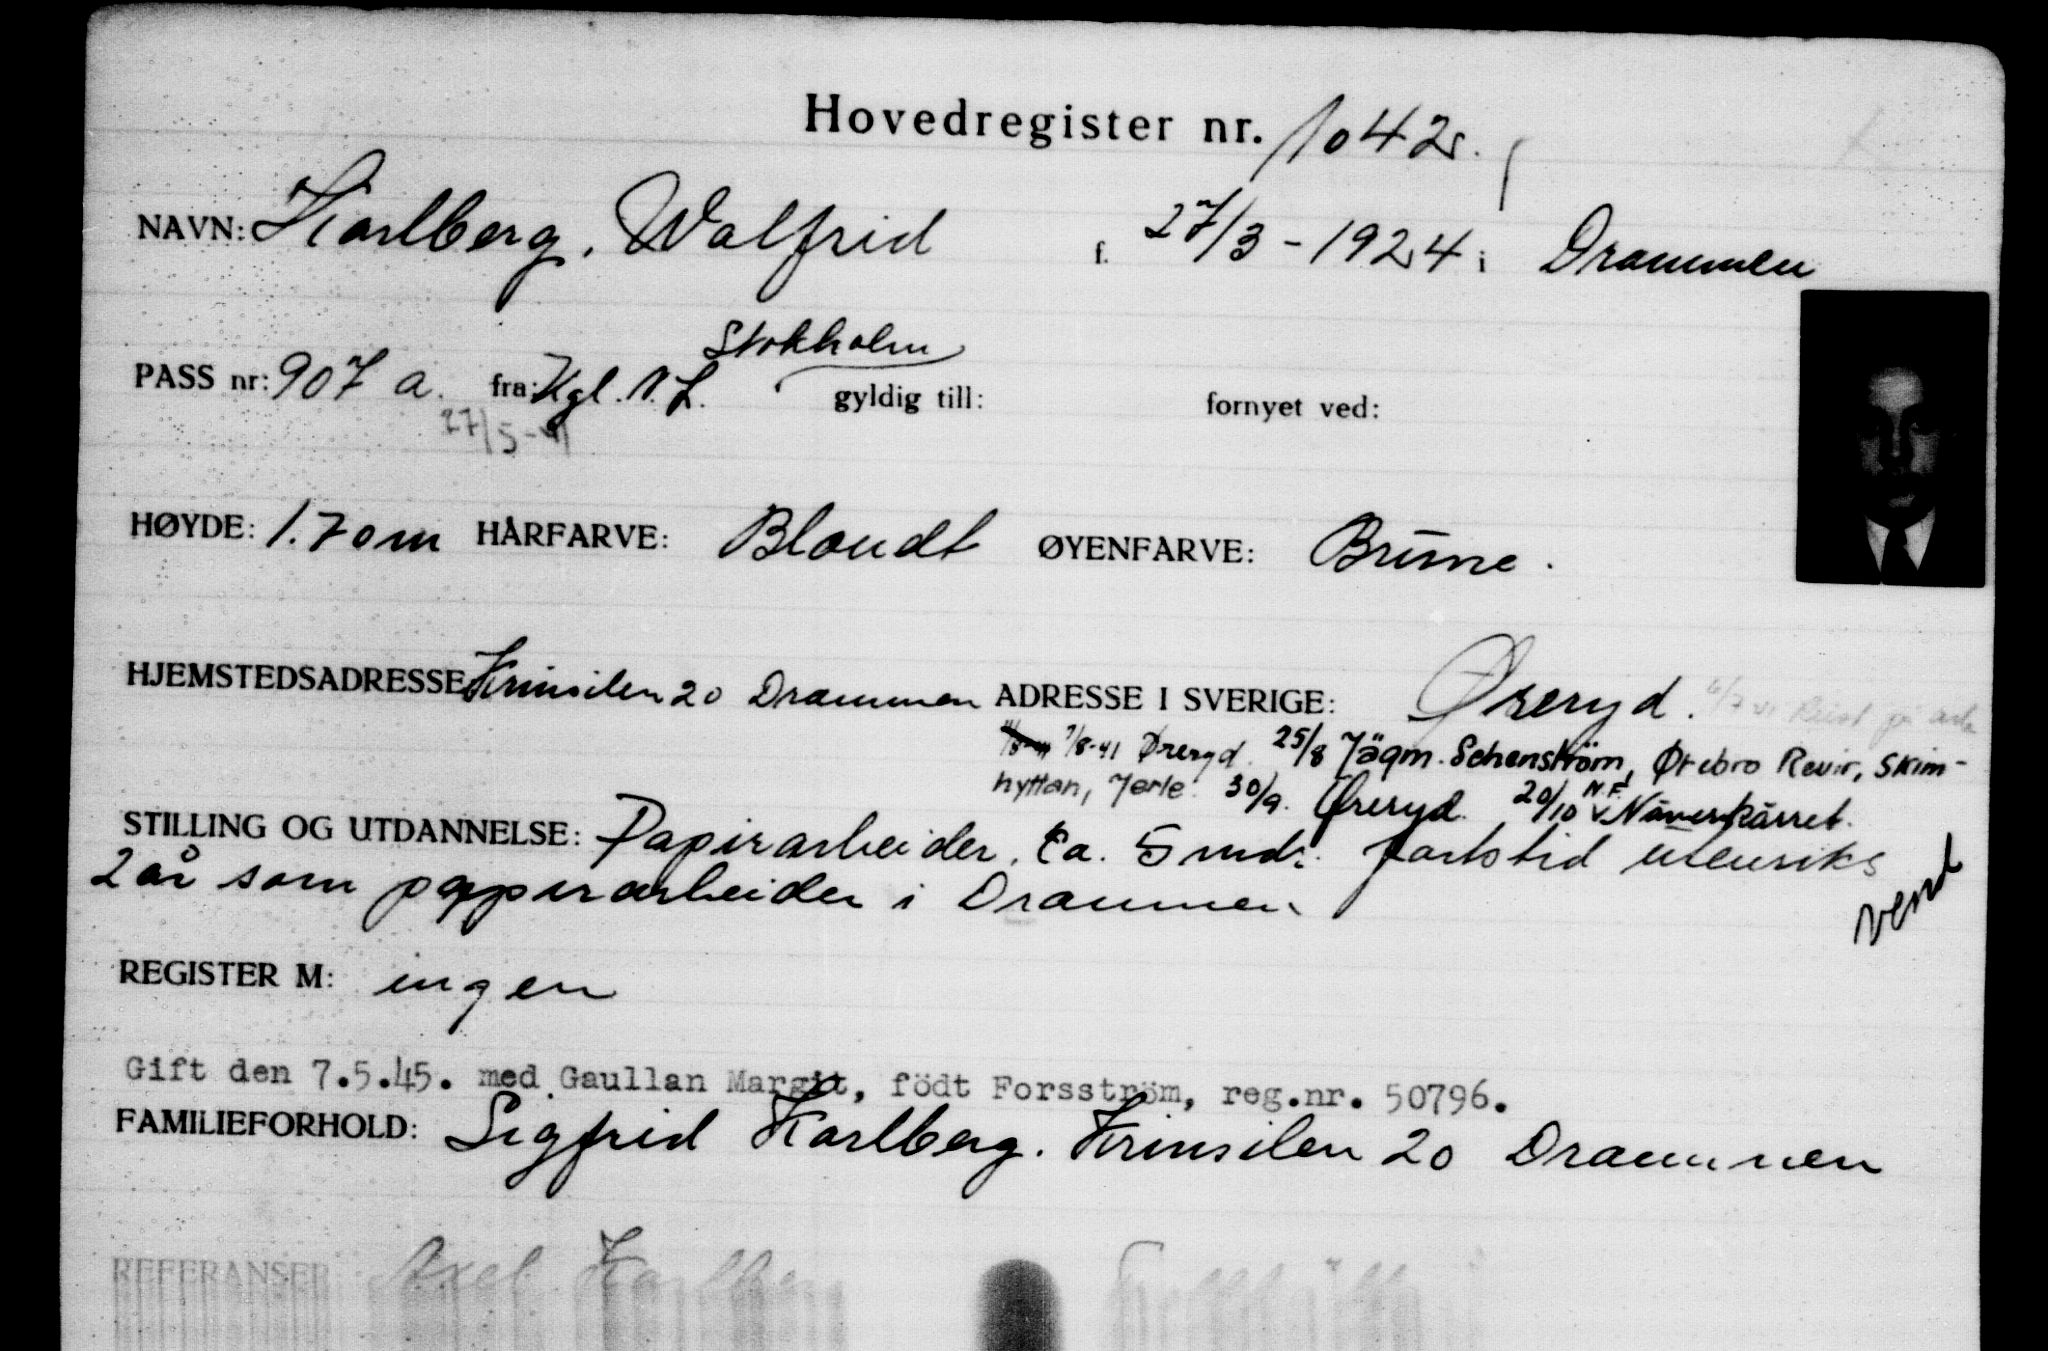 Hovedregister nr. 1042.
NAVN: Karlberg, Walfrid f. 27/3 - 1924 i Drammen
Stokholm
PASS nr: 907 a. fra: Kgl. N. L. gyldig till: fornyet ved:
27/5-41
HØYDE: 1.70 m HÅRFARVE: Blondt ØYENFARVE: Brune.
HJEMSTEDSADRESSE: Krinsilen 20 Drammen ADRESSE I SVERIGE: Øreryd.
7/8-41 Øreryd. 25/8 Jägm. Schenström, Ørebro Revir, Skim-
hyttan, Jerle. 30/9. Øreryd. 20/10 N.F. v. Näverkärret.
STILLING OG UTDANNELSE: Papirarbeider. Ca. 5 mdr. fartstid utenriks
2 år som papirarbeider i Drammen
vend
REGISTER M: ingen
Gift den 7.5.45. med Gaullan Margit, födt Forsström, reg.nr. 50796.
FAMILIEFORHOLD: Sigfrid Karlberg. Krinsilen 20 Drammen
REFERANSER Axel Karlberg